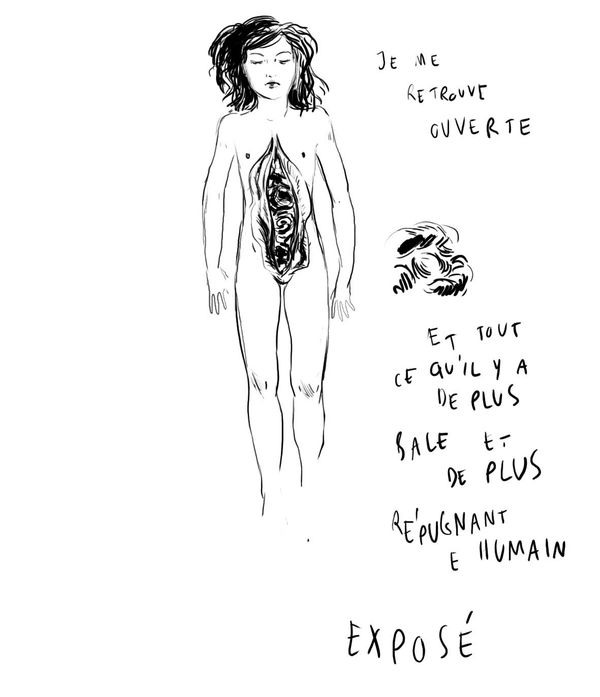 JE ME
RETROUVE
OUVERTE
ET TOUT
CE QU'IL Y A
DE PLUS
SALE ET
DE PLUS
RÉPUGNANT
E HUMAIN
EXPOSÉ